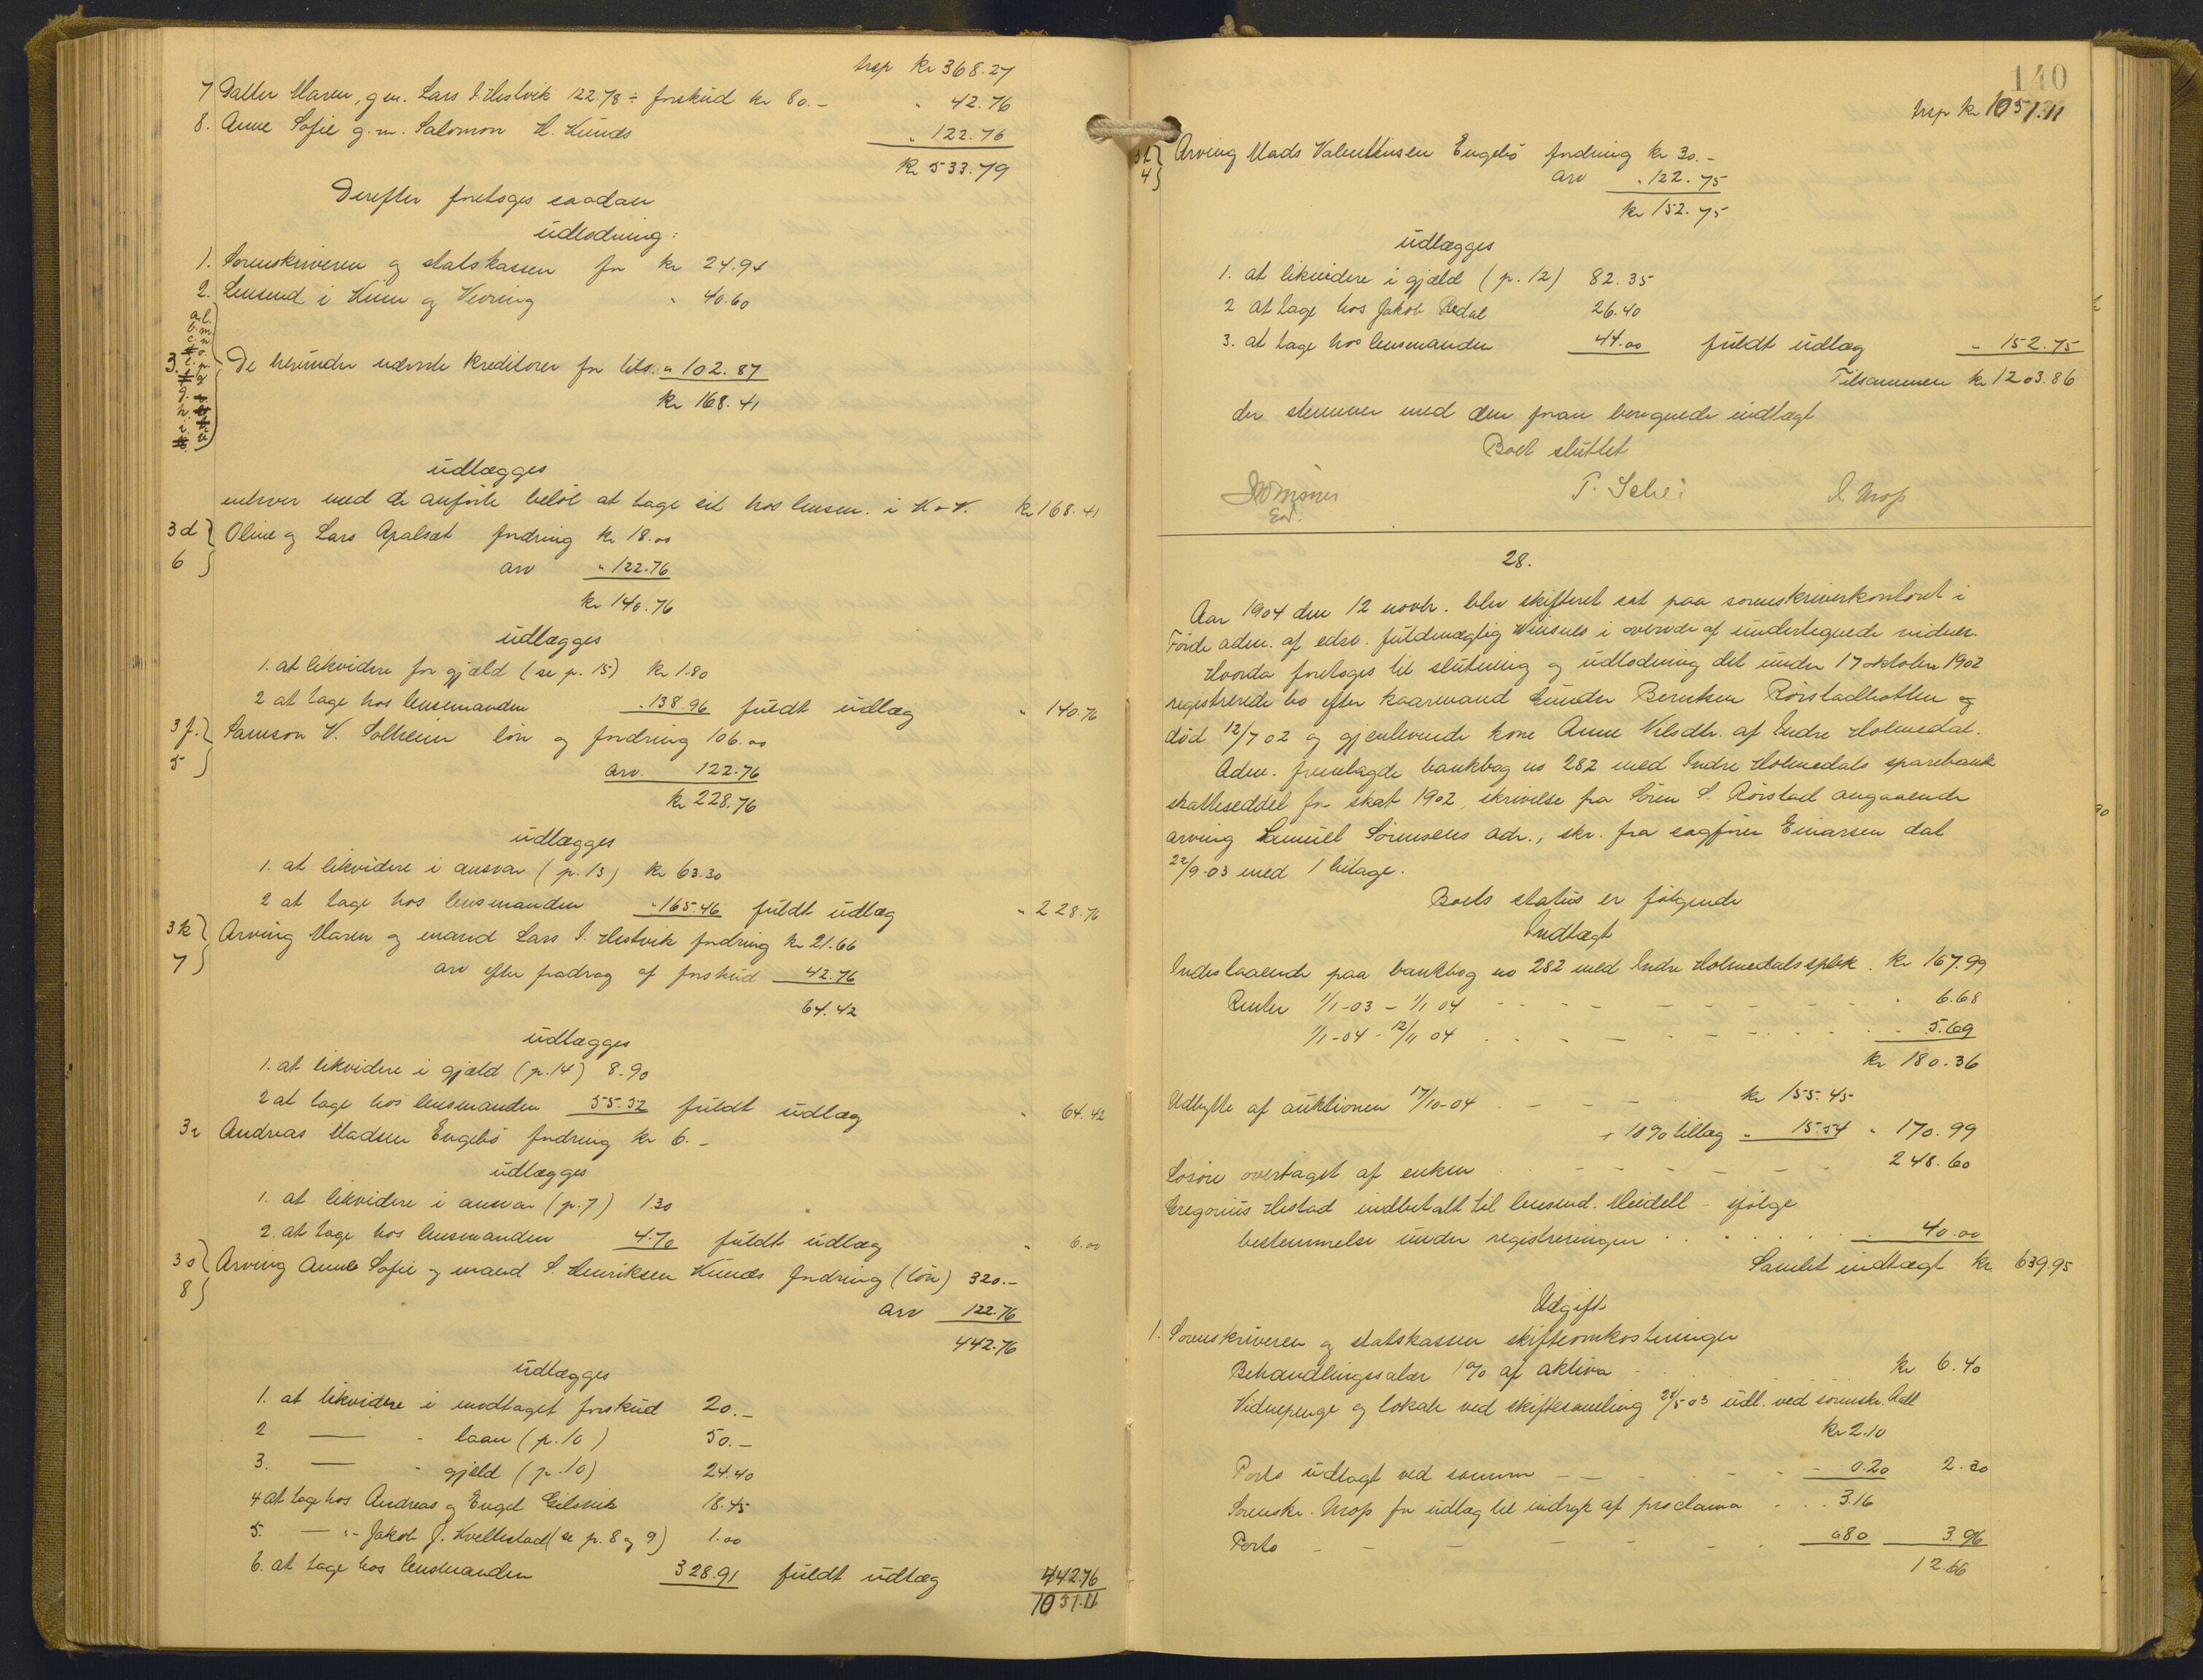 trsp kr 368.27
7 Datter Maren, g.m. Lars I. Hestvik 122.78 ÷ forskud kr 80.- " 42.76
8. Anne Sofie g.m. Salomon H. Kunds " 122.76
kr 533.79
Derefter foretoges saadan
udlodning:
1. Sorenskriveren og statskassen for kr 24.94
2. Lensmd i Kinn og Vevring " 40.60
3. De herunder nævnte kreditorer for tils. " 102.87
kr 168.41
udlægges
enhver med de anførte beløb at tage sit hos lensm. i K. o V. kr 168.41
3d 6 Oline og Lars Apalset fordring kr 18.00
arv " 122.76
kr 140.76
udlægges
1. at likvidere for gjæld (se p. 15) kr 1.80
2 at tage hos lensmanden " 138.96 fuldt udlæg " 140.76
3f. 5 Samson V. Solheim løn og fordring 106.00
arv. 122.76
kr 228.76
udlægges
1. at likvidere i ansvar (p. 13) kr 63.30
2 at tage hos lensmanden " 165.46 fuldt udlæg " 228.76
3k 7 Arving Maren og mand Lars I. Hestvik fordring kr 21.66
arv efter fradrag af forskud 42.76
64.42
udlægges
1. at likvidere i gjæld (p. 14) 8.90
2 at tage hos lensmanden 55.52 fuldt udlæg " 64.42
3r Andreas Madsen Engebø fordring kr 6.-
udlægges
1. at likvidere i ansvar (p. 7) 1.30
2. at tage hos lensmanden 4.70 fuldt udlæg " 6.00
3s 8 Arving Anne Sofie og mand S. Henriksen Kunds fordring (løn) 320.-
arv 122.76
442.76
udlægges
1. at likvidere i modtaget forskud 20.-
2 — " laan (p. 10) 50.-
3. — " gjæld (p. 10) 24.40
4 at tage hos Andreas og Engel Gilsvik 18.45
5. — " - Jakob J. Kvellestad (se p. 8 og 9) 1.00
6. at tage hos lensmanden 328.91 fuldt udlæg 442.76
1051.11
140
trsp kr 1051.11
3t 4 Arving Mads Valentinsen Engebø fordring kr 30.-
arv " 122.75
kr 152.75
udlægges
1. at likvidere i gjæld (p. 12) 82.35
2 at tage hos Jakob Redal 26.40
3. at tage hos lensmanden 44.00 fuldt udlæg " 152.75
Tilsammen kr 1203.86
der stemmer med den foran beregnede indtægt
Boet sluttet
P. Schei
28.
Aar 1904 den 12 novbr. blev skifteret sat paa sorenskriverkontoret i
Førde adm. af edsv. fuldmægtig i overvær af undertegnede vidner.
Hvorda foretoges til slutning og udlodning det under 17 oktober 1902
registrerede bo efter kaarmand Gunder Berntsen Rørstadhatten og
død 12/7 02 og gjenlevende kone Anne Nilsdtr. af Indre Holmedal.
Adm. fremlagde bankbog no 282 med Indre Holmedals sparebank
skatteseddel for skat 1902, skrivelse fra Søren S. Rørstad angaaende
arving Samuel Sørensens adr., skr. fra sagfører Einarsen dat
22/9-03 med 1 bilage.
Boets status er følgende
Indtægt
Indestaaende paa bankbog no 282 med Indre Holmedals spbk. kr 167.99
Renter 1/1-03 - 1/1 04 " 6.68
1/1-04 - 12/11 04 " 5.69
kr 180.36
Udbytte af auktionen 17/10-04 kr 155.45
+ 10% tillæg " 15.54 " 170.99
Løsøre overtaget af enken 248.60
Gregorius Hestad indbetalt til lensmd. Heidell - ifølge
bestemmelse under registreringen 40.00
Samlet indtægt kr 639.95
Udgift
1. Sorenskriveren og statskassen skifteomkostninger
Behandlingssalær 1% af aktiva kr 6.40
Vidnepenge og lokale ved skiftesamling 28/5 03 udl. ved sorenskr. Adl
kr 2.10
Porto udlagt ved samme - 0.20 2.30
Sorenskr. Krop for udlæg til indryk af proclama 3.16
Porto 0.80 3.96
12.66